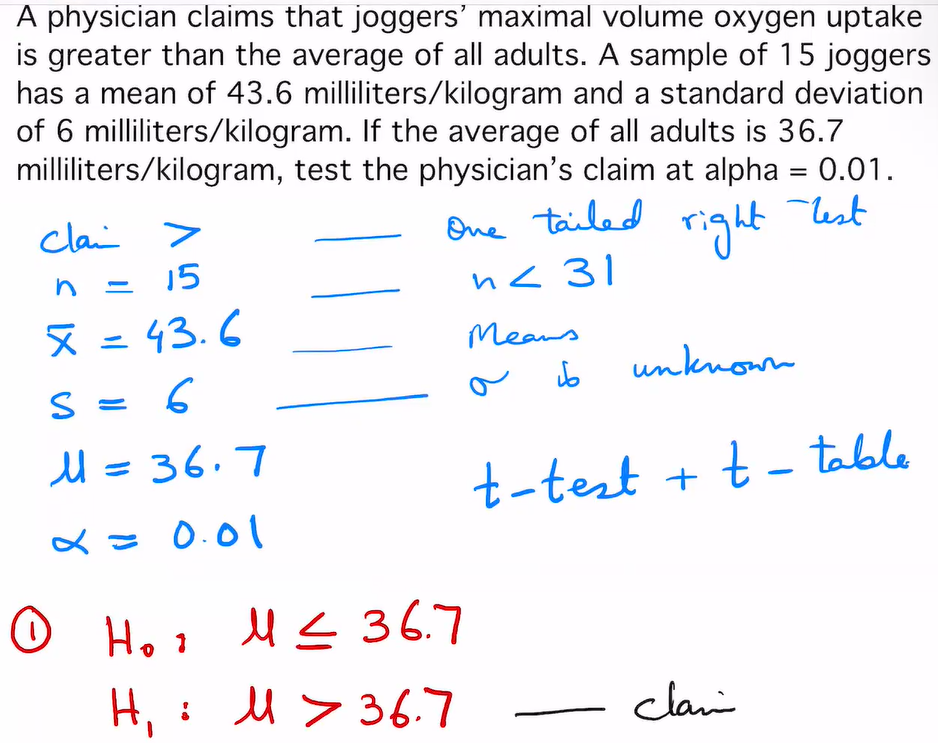 A physician claims that joggers’ maximal volume oxygen uptake
is greater than the average of all adults. A sample of 15 joggers
has a mean of 43.6 milliliters/kilogram and a standard deviation
of 6 milliliters/kilogram. If the average of all adults is 36.7
milliliters/kilogram, test the physician’s claim at alpha = 0.01.
clai > — One tailed right test
n = 15 — n < 31
x̄ = 43.6 — Means
s = 6 — σ is unknown
μ = 36.7
t-test + t-table
α = 0.01
① H₀: μ ≤ 36.7
H₁: μ > 36.7 — clai